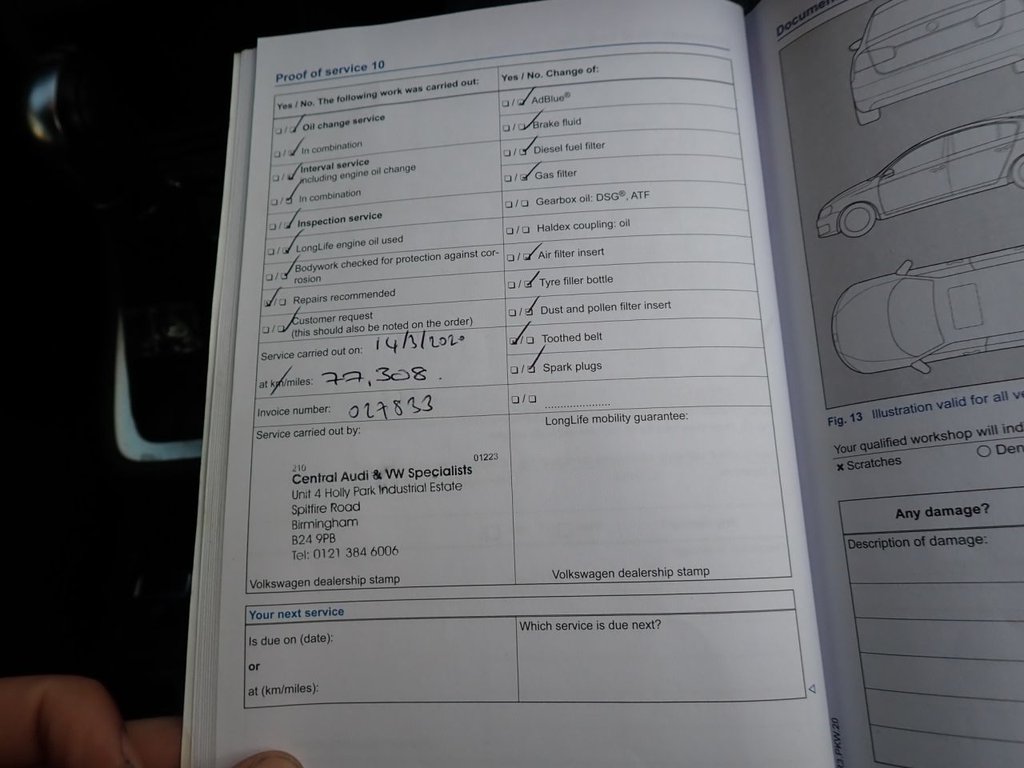 Proof of service 10
Yes / No. The following work was carried out:
☐/☑ Oil change service
☐/☑ In combination
☐/☑ Interval service
including engine oil change
☐/☑ In combination
☐/☑ Inspection service
☐/☑ LongLife engine oil used
☐/☑ Bodywork checked for protection against cor-
rosion
☑/☐ Repairs recommended
☐/☑ Customer request
(this should also be noted on the order)
Service carried out on: 14/3/2020
at km/miles: 77,308.
Invoice number: 027833
Service carried out by:
210 01223
Central Audi & VW Specialists
Unit 4 Holly Park Industrial Estate
Spitfire Road
Birmingham
B24 9PB
Tel: 0121 384 6006
Volkswagen dealership stamp
Yes / No. Change of:
☐/☑ AdBlue®
☐/☑ Brake fluid
☐/☑ Diesel fuel filter
☐/☑ Gas filter
☐/☐ Gearbox oil: DSG®, ATF
☐/☐ Haldex coupling: oil
☐/☑ Air filter insert
☐/☑ Tyre filler bottle
☐/☑ Dust and pollen filter insert
☑/☐ Toothed belt
☐/☑ Spark plugs
☐/☐ .....................
LongLife mobility guarantee:
Volkswagen dealership stamp
Your next service
Is due on (date):
or
at (km/miles):
Which service is due next?
Fig. 13 Illustration valid for all
Your qualified workshop will
x Scratches
Any damage?
Description of damage: